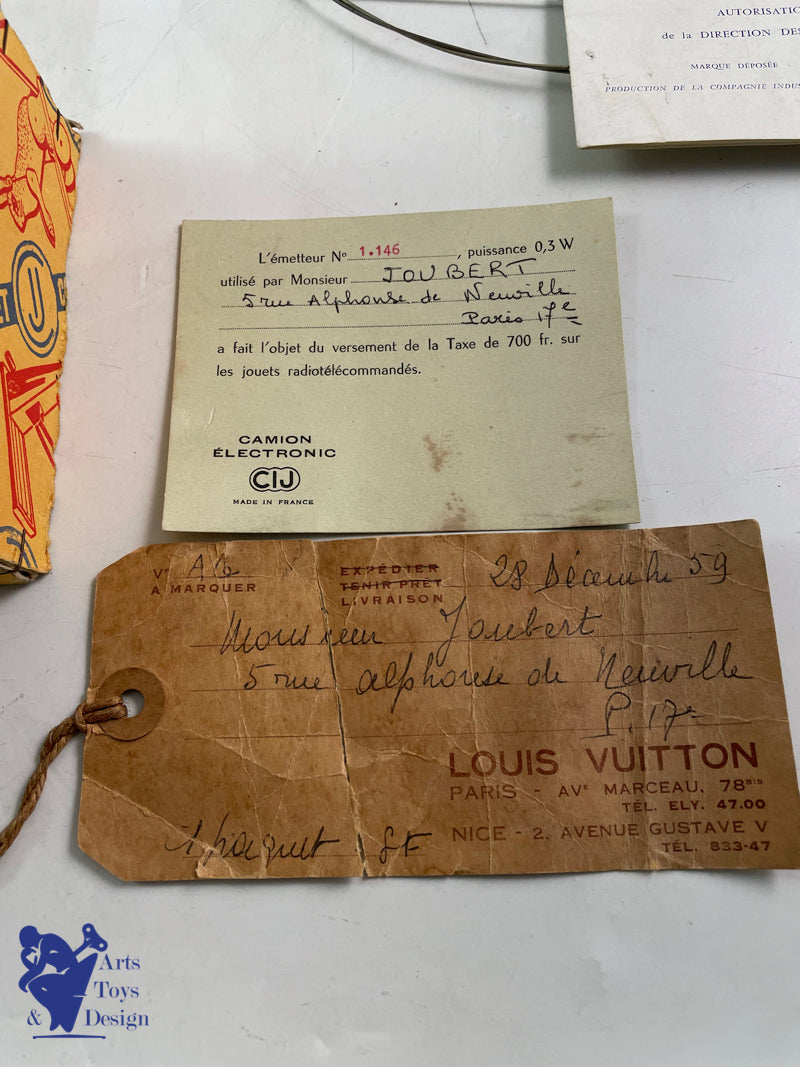 AUTORISATIO
de la DIRECTION DES
MARQUE DÉPOSÉE -
PRODUCTION DE LA COMPAGNIE INDUS
L'émetteur N° 1.146, puissance 0,3 W
utilisé par Monsieur JOUBERT
5 rue Alphonse de Neuville
Paris 17e
a fait l'objet du versement de la Taxe de 700 fr. sur
les jouets radiotélécommandés.
CAMION
ÉLECTRONIC
CIJ
MADE IN FRANCE
J
A MARQUER
EXPÉDIER
TENIR PRÊT
LIVRAISON
28 Décembre 59
Monsieur Joubert
5 rue alphonse de Neuville
P. 17e
LOUIS VUITTON
PARIS - AVE MARCEAU, 78BIS
TÉL. ELY. 47.00
1 paquet
NICE - 2, AVENUE GUSTAVE V
TÉL. 833-47
Arts
Toys
& Design